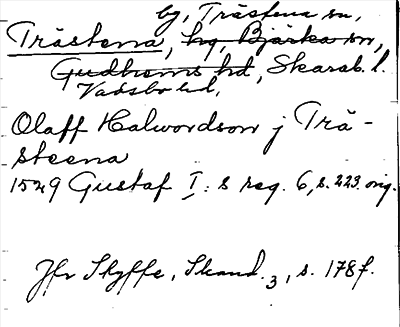 by, Trästena sn,
Trästena, hg, Bjärka sn,
Gudhems hd, Skarab. l.
Vadsbo hd,
Olaff Halwordson j Trä-
steena
1529 Gustaf I: s reg. 6, s. 223. orig.
Jfr Styffe, Skand. 3, s. 178 f.